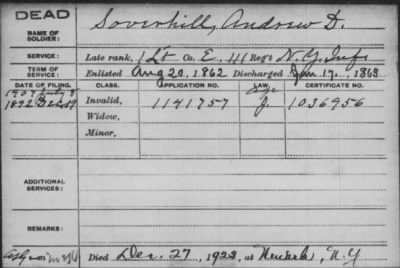 DEAD
NAME OF SOLDIER:
Soverhill, Andrew D.
SERVICE:
Late rank, 1 Lt Co. E, 111 Reg't N.Y. Inf
TERM OF SERVICE:
Enlisted Aug 20, 1862 Discharged Jan 17, 1863
DATE OF FILING. CLASS. APPLICATION NO. LAW. CERTIFICATE NO.
1907 July 8
1892 Invalid, 1141757 J. 1036956
Widow,
Minor,
ADDITIONAL SERVICES:
REMARKS:
Died Dec. 27, 1923, at Newark, N.Y